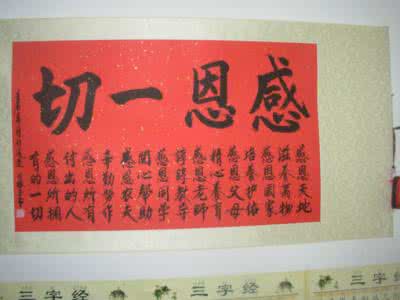 感恩一切
感恩天地
滋养萬物
感恩國家
培养护佑
感恩父母
精心养育
感恩老師
諄諄教导
感恩同学
関心帮助
感恩农夫
辛勤劳作
感恩所有
付出的人
感恩所拥
有的一切
三字经
三字经
三字经